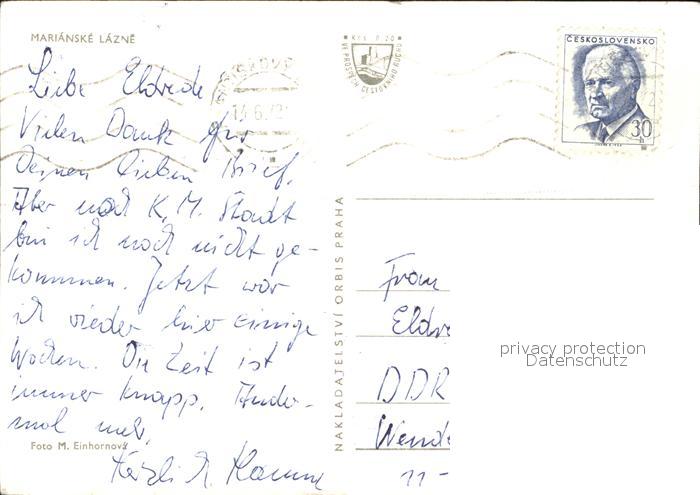 MARIÁNSKÉ LÁZNĚ
Liebe Eldrede
Vielen Dank für
Deinen lieben Brief.
Aber nach K. M. Stadt
bin ich noch nicht ge-
kommen. Jetzt war
ich wieder hier einige
Wochen. Die Zeit ist
immer knapp. Ander-
mal mehr.
Herzli
Foto M. Einhornová
NAKLADATELSTVÍ ORBIS PRAHA
Kčs 0,20
VE PROSPĚCH CESTOVNÍHO RUCHU
ČESKOSLOVENSKO
30 h
Frau
Eldre
DDR
Wend
11-
privacy protection
Datenschutz